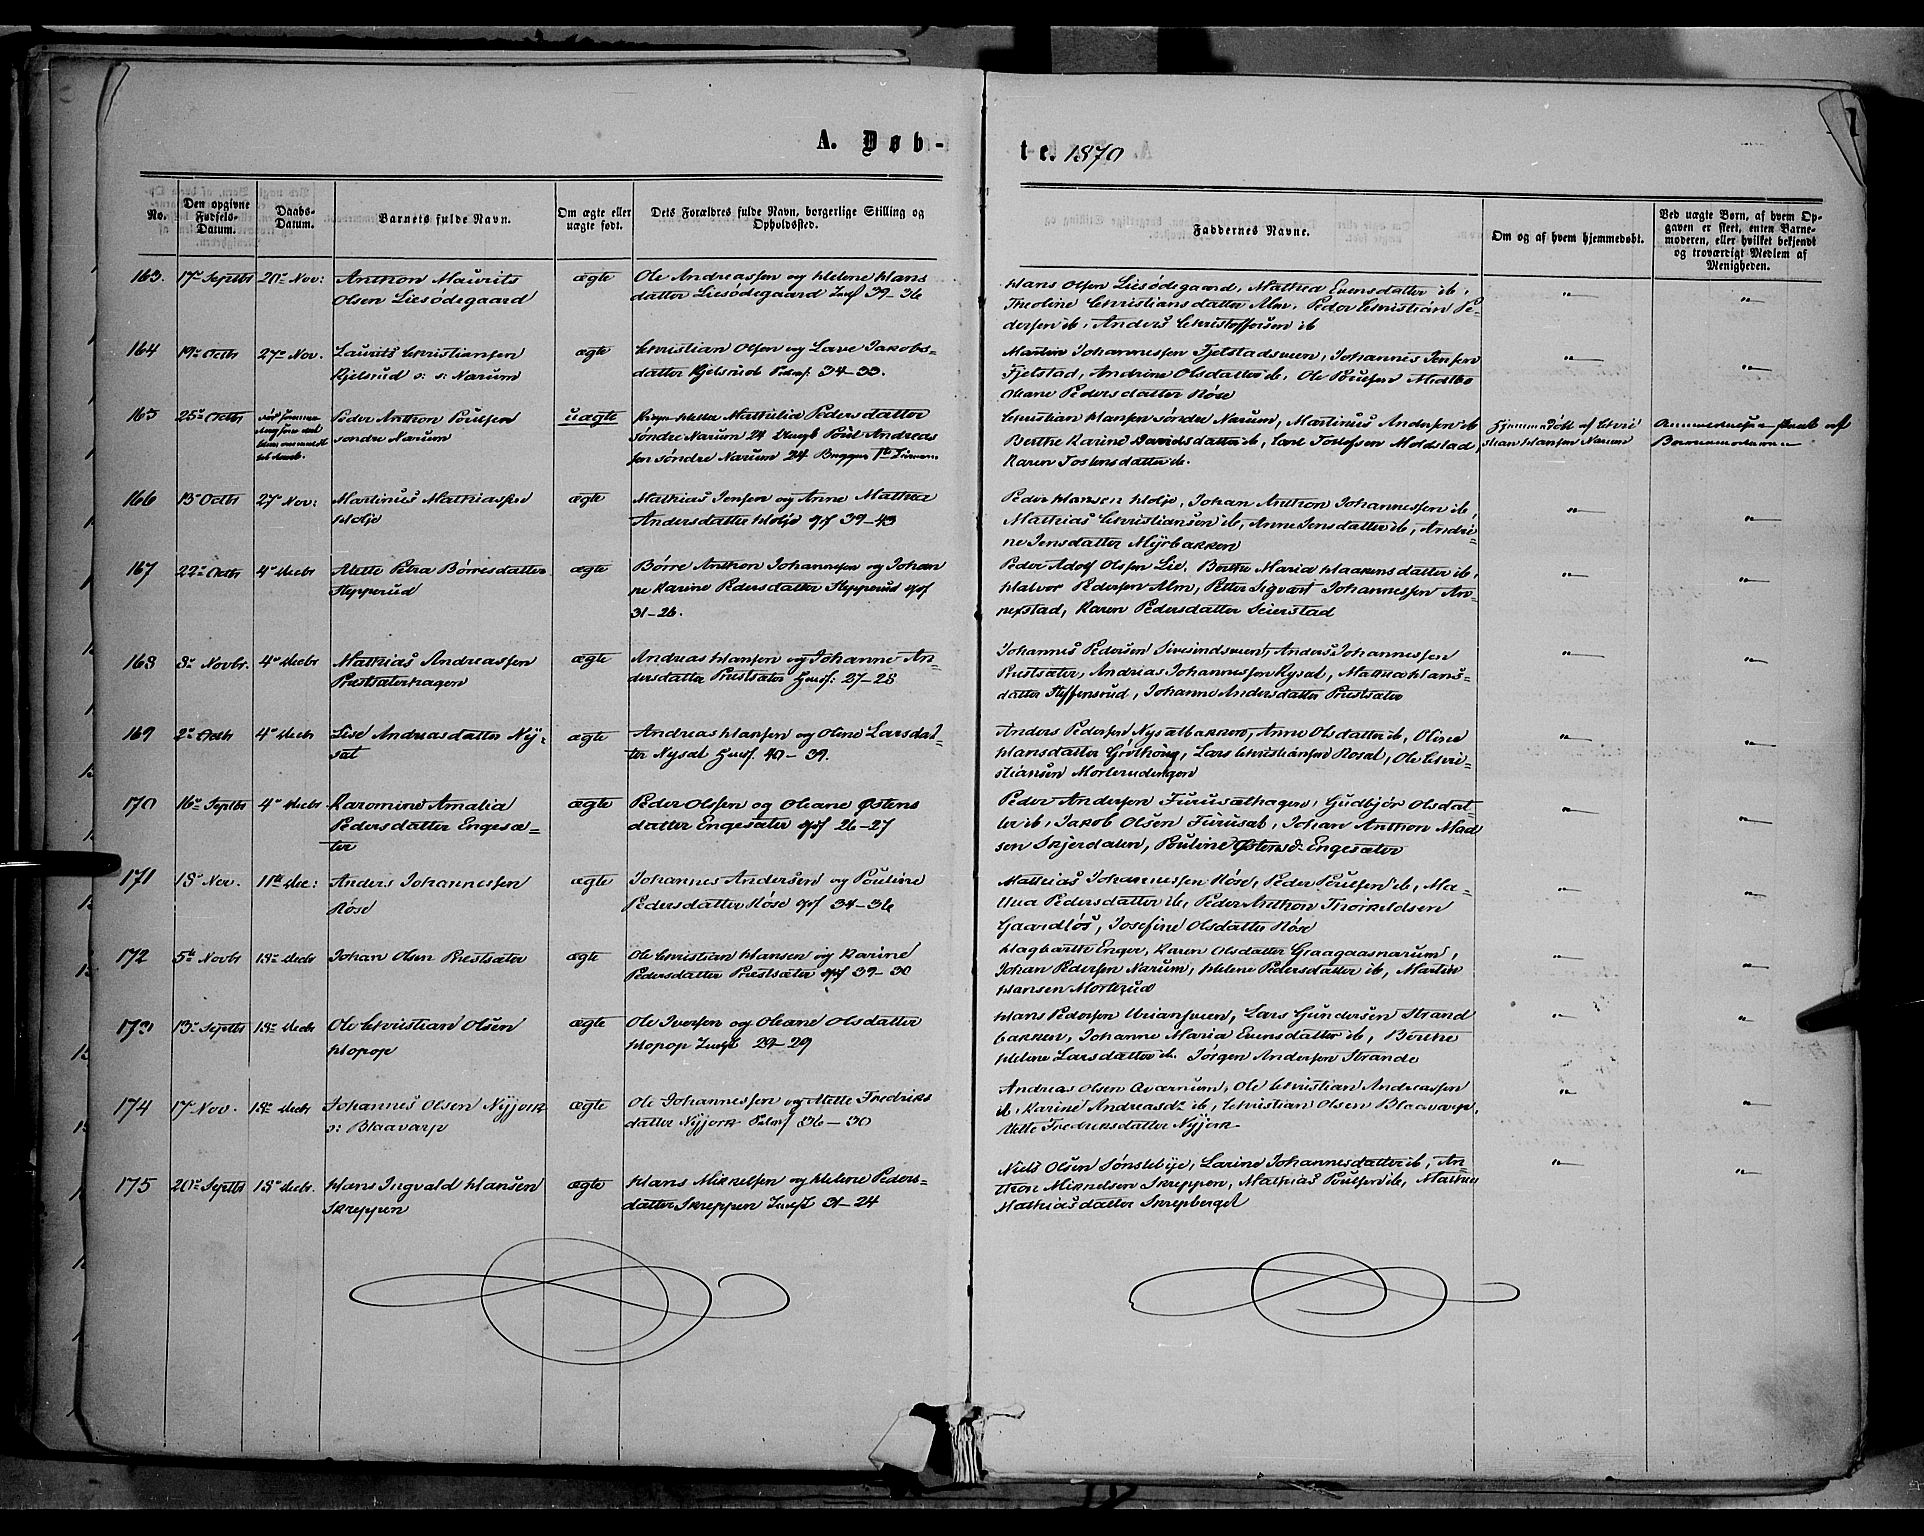 A. Døb-
te. 1870
No.
Den opgivne Fødsels-Datum.
Daabs-Datum.
Barnets fulde Navn.
Om ægte eller uægte født.
Dets Forældres fulde Navn, borgerlige Stilling og Opholdssted.
Faddernes Navne.
Om og af hvem hjemmedøbt.
Ved uægte Børn, af hvem Op-
gaven er skeet, enten Barne-
moderen, eller hvilket bekjendt
og troværdigt Medlem af
Menigheden.
163. 17de Septbr 20de Nov: Anthon Maurits ægte Ole Andreassen og Helene Hans
Olsen Liesødegaard datter Liesødegaard Inds 39-36
Hans Olsen Liesødegaard, Mathea Evensdatter ib,
Thedine Christiansdatter Alm, Peder Christian Pe-
dersen ib, Anders Christoffersen ib
164 19de Octbr 27de Nov. Laurits Christiansen ægte Christian Olsen og Lave Jakobs-
Kjelsrud s: s: Narum datter Kjelsrud 34-33.
Martin Johannessen Fjelstadsveen, Johannes Jensen
Fjelstad, Andrine Olsdatter ib, Ole Poulsen
Oleane Pedersdatter Røse
165 25de Octbr Peder Anthon Poulsen uægte Pige Helle Mathilia Pedersdatter
søndre Narum søndre Narum 24 Ungk Poul Andreas
sen søndre Narum 24 Begges 1ste
Christian Hansen søndre Narum, Martinus Andersen ib
Berthe Karine Davidsdatter ib, Carl Tostefsen Moldstad,
Karen Tostensdatter ib.
Hjemmedøbt af Chri
stian Hansen Narum
Anmeldelse skeet af
Barnemoderen
166 13de Octbr 27de Nov: Martinus Mathiassen ægte Mathias Jensen og Anne Mathea
Holje Andersdatter Holje gsf 39-43
Peder Hansen Holje, Johan Anthon Johannessen ib,
Mathias Christiansen ib, Anne Jensdatter ib, Andri-
ne Jensdatter Myrbakken
167 22de Octbr 4de Decbr Mette Petra Børresdatter ægte Børre Anthon Johannessen og Johan
Stepperud ne Karine Pedersdatter Stepperud gsf
31-26.
Peder Adolf Olsen Lie, Berthe Maria Haakensdatter ib,
Halvor Pedersen Alm, Petter Sigvart Johannessen An-
nexstad, Karen Pedersdatter Seierstad
168 8de Novbr. 4de Decbr Mathias Andreassen ægte Andreas Hansen og Johanne An-
Prestsæterhagen dersdatter Prestsæter Husf: 27-28
Johannes Pedersen Sivesindsveen, Anders Johannessen
Prestsæter, Andrias Johannessen Rysat, Mathea Hans-
datter Steffensrud, Johanne Andersdatter Prestsæter
169 2de Octbr 4de Decbr Lise Andreasdatter Ny- ægte Andreas Hansen og Oline Larsdat-
sat ter Nysat Husf. 40-39.
Anders Pedersen Nysætbakken, Anne Olsdatter ib, Oline
Hansdatter Grøthøug, Lars Christiansen Rosat, Ole Chri-
stiansen Morterudengen
170 16de Septbr 4de Decbr Karomine Amalia ægte Peder Olsen og Oleane Østens
Pedersdatter Engesæ- datter Engesæter gsf 26-27
ter
Peder Andersen Furusæthagen, Gudbjør Olsdat-
ter ib, Jakob Olsen Furusat, Johan Anthon Mad
sen Skjerdalen, Pouline Østensd. Engesæter
171 18de Nov. 11te Dec: Anders Johannessen ægte Johannes Andersen og Pouline
Røse Pedersdatter Røse gsf 34-36
Mathias Johannessen Røse, Peder Poulsen ib, Ma-
thea Pedersdatter ib, Peder Anthon Thorkeldsen
Gaardløs, Josefine Olsdatter Røse
172 5te Novbr 18de Decbr Johan Olsen Prestsæter ægte Ole Christian Hansen og Karine
Pedersdatter Prestsæter gsf 39-30
Hagbarth Enger, Karen Olsdatter Graagaasnarum,
Johan Pedersen Narum, Helene Pedersdatter ib, Martin
Hansen Morterud
173 13de Septbr 18de Decbr Ole Christian Olsen ægte Ole Iversen og Oleane Olsdatter
Hopop Indst 29-29
Hans Pedersen Uriansveen, Lars Gundersen Strand
bakken, Johanne Maria Evensdatter ib, Berthe
Helene Larsdatter ib. Jørgen Andersen Strande
174 17de Nov. 18de Decbr Johannes Olsen Nyjork ægte Ole Johannessen og Mette Fredriks
s: Blaavarp datter Nyjork 36-30
Andreas Olsen Qværnum, Ole Christian Andreassen
ib, Karine Andreasdr ib, Christian Olsen Blaavarp,
Mette Fredriksdatter Nyjork
175 20de Septbr 18de Decbr. Hans Ingvald Hansen ægte Hans Mikkelsen og Helene Peders-
Skreppen datter Skreppen Indst 31-24
Niels Olsen Sønsteby, Larine Johannesdatter ib, An-
thon Mikkelsen Skreppen, Mathias Poulsen ib, Mathea
Mathiasdatter Skrepberget